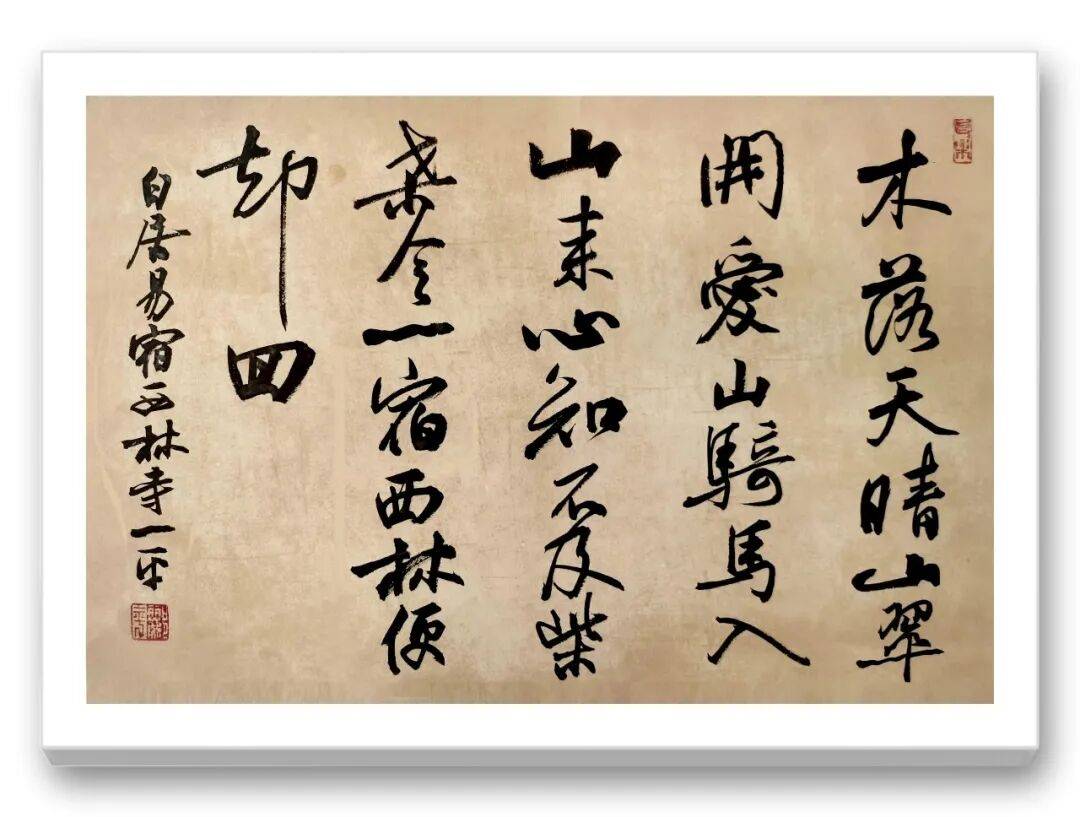 木落天晴山翠
開愛山騎馬入
山来心知不及柴
桒令一宿西林便
却回
白居易宿西林寺一平